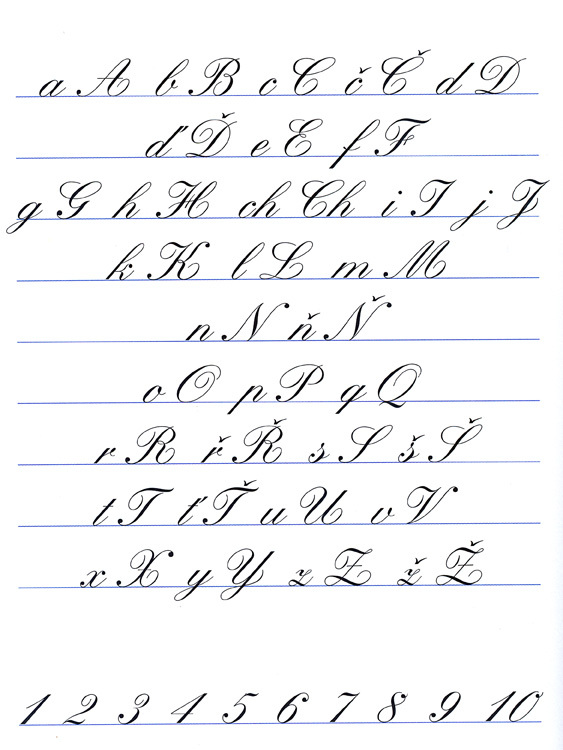 a A b B c C č Č d D
ď Ď e E f F
g G h H ch Ch i I j J
k K l L m M
n N ň Ň
o O p P q Q
r R ř Ř s S š Š
t T ť Ť u U v V
x X y Y z Z ž Ž
1 2 3 4 5 6 7 8 9 10